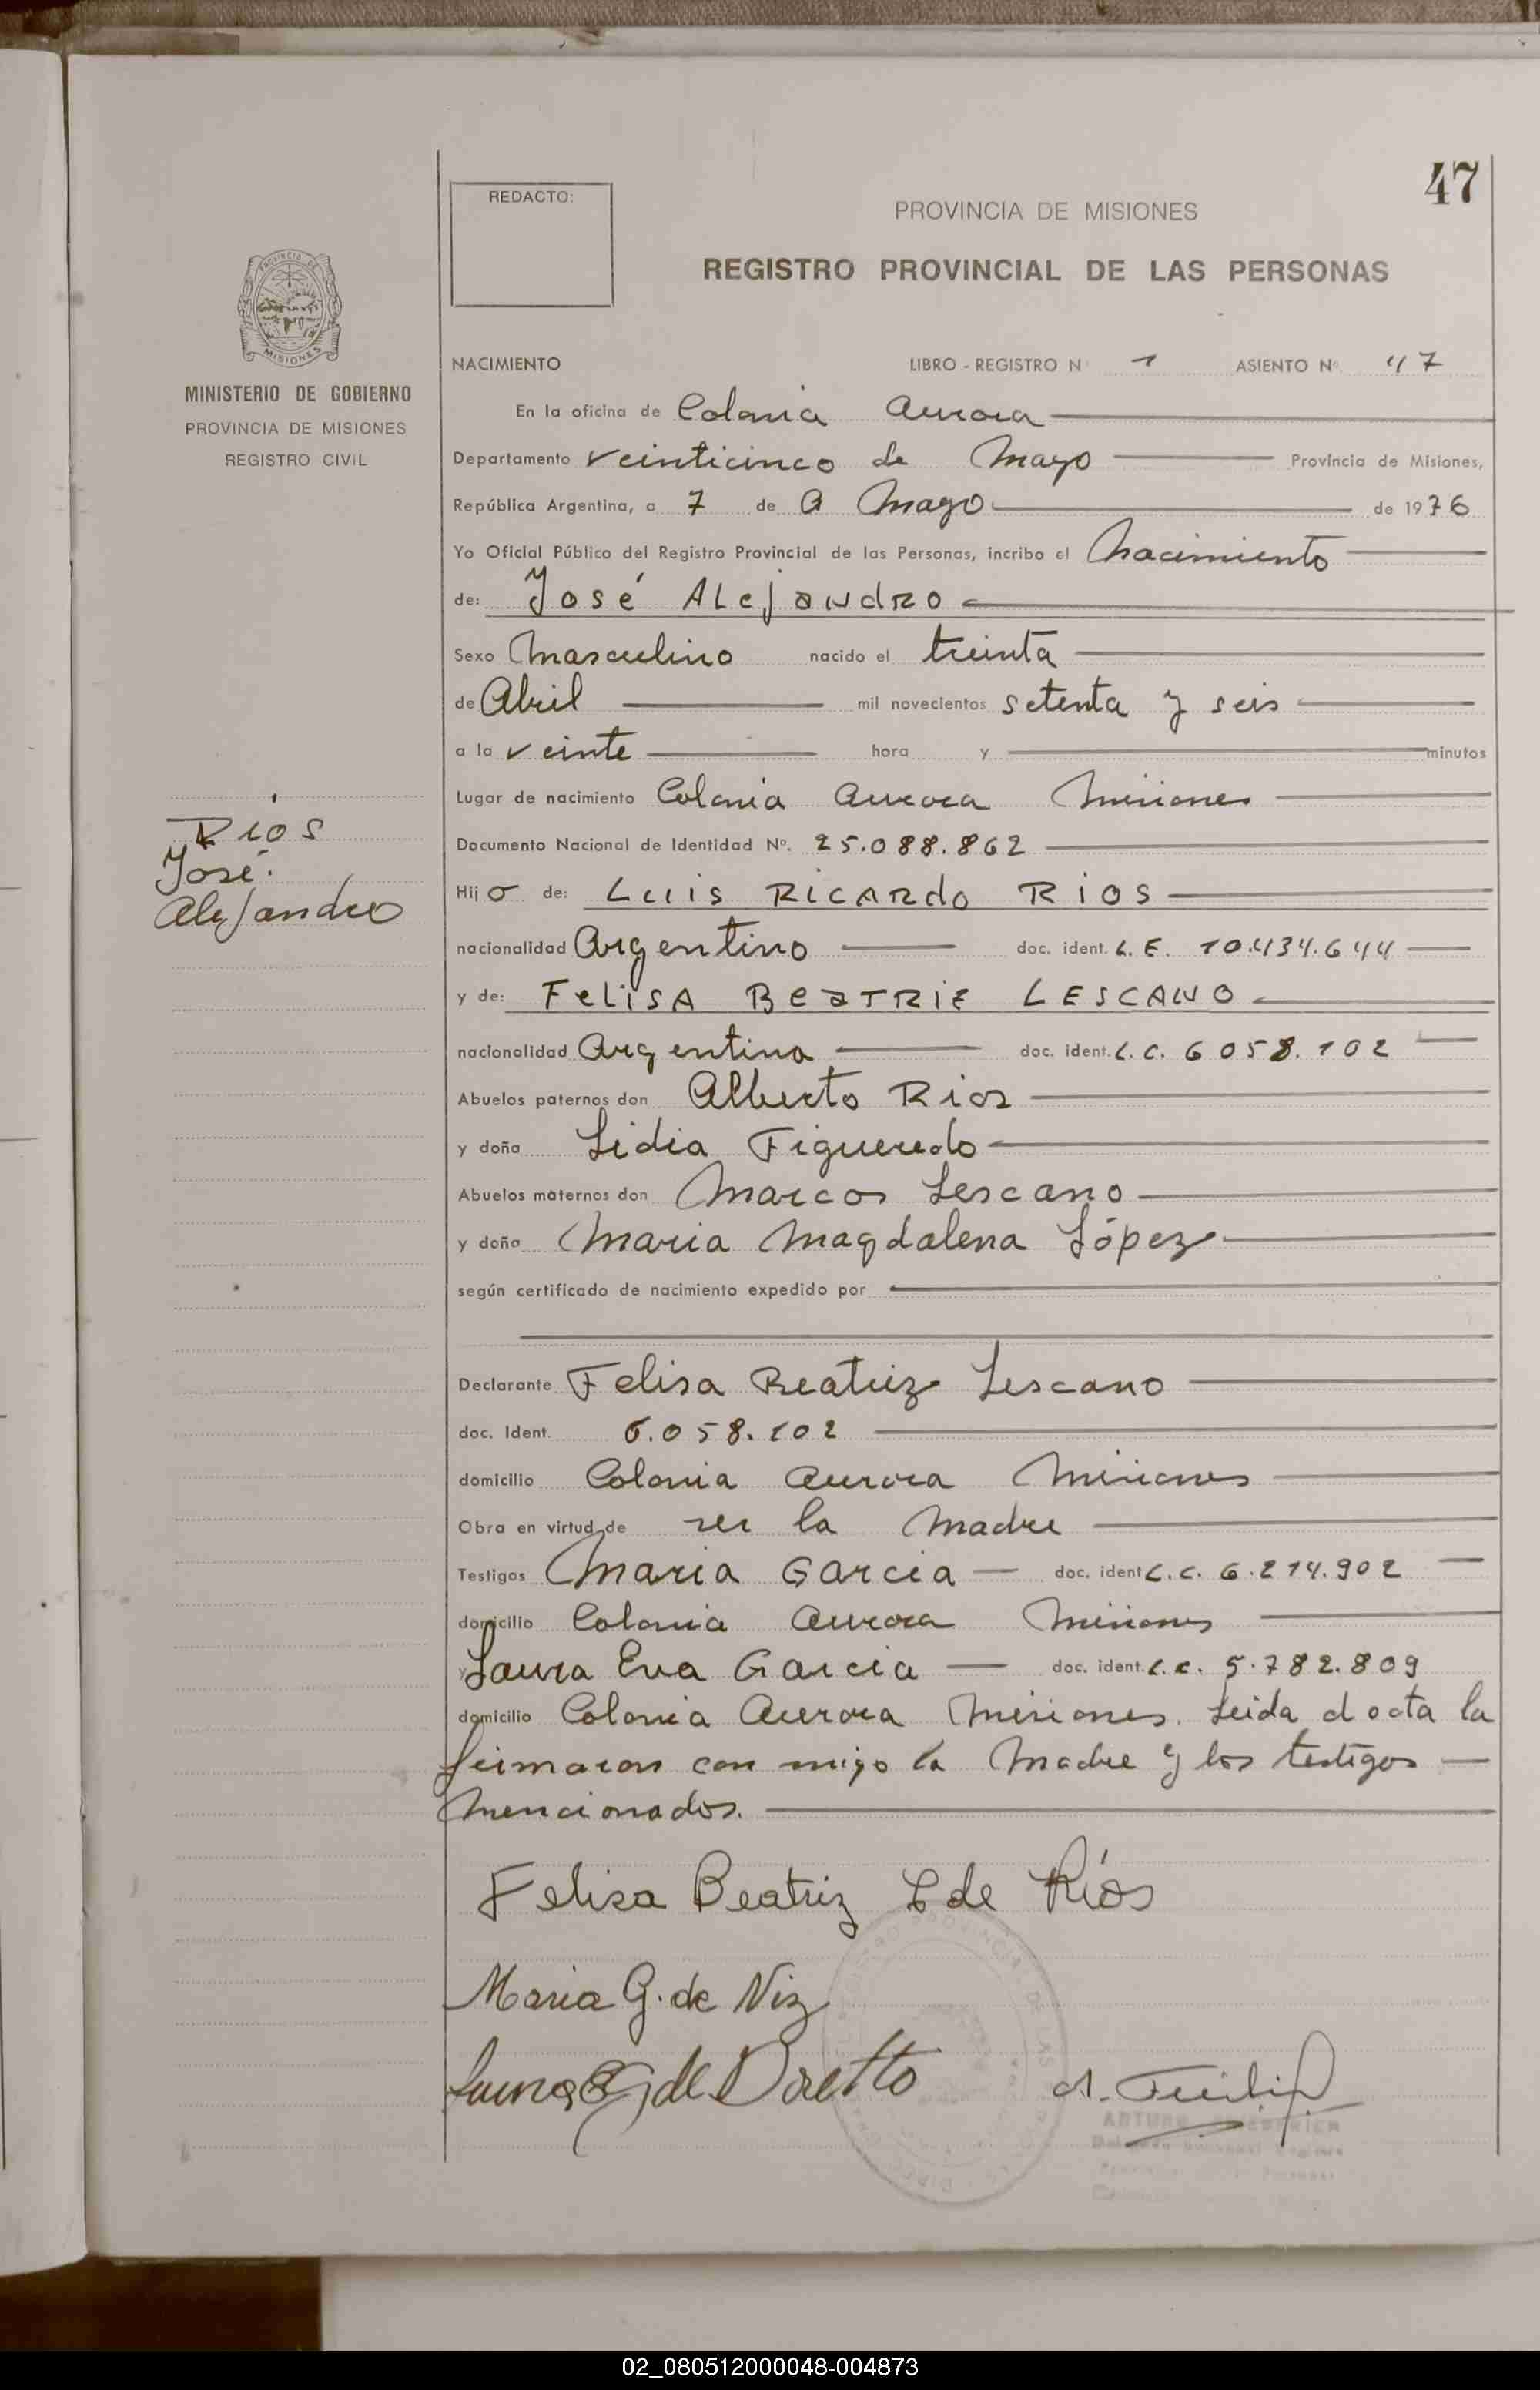 47
REDACTO:
PROVINCIA DE MISIONES
REGISTRO PROVINCIAL DE LAS PERSONAS
PROVINCIA DE
MISIONES
MINISTERIO DE GOBIERNO
PROVINCIA DE MISIONES
REGISTRO CIVIL
NACIMIENTO LIBRO - REGISTRO N 1 ASIENTO Nº 47
En la oficina de Colonia Aurora
Departamento veinticinco de Mayo Provincia de Misiones,
República Argentina, a 7 de a Mayo de 1976
Yo Oficial Público del Registro Provincial de las Personas, incribo el Nacimiento
de: José Alejandro
Sexo Masculino nacido el treinta
de Abril mil novecientos setenta y seis
a la veinte hora y minutos
Lugar de nacimiento Colonia Aurora Misiones
Ríos
José
Alejandro
Documento Nacional de Identidad Nº. 25.088.862
Hijo de: Luis Ricardo Rios
nacionalidad Argentino doc. ident. L.E. 10.434.644
y de: Felisa Beatriz LESCANO
nacionalidad Argentina doc. ident. L.C. 6058.102
Abuelos paternos don Alberto Rios
y doña Lidia Figueredo
Abuelos maternos don Marcos Lescano
y doña Maria Magdalena López
según certificado de nacimiento expedido por
Declarante Felisa Beatriz Lescano
doc. Ident. 6.058.102
domicilio Colonia Aurora Misiones
Obra en virtud de ser la Madre
Testigos Maria Garcia doc. ident L.C. 6.214.902
domicilio Colonia Aurora Misiones
y Laura Eva Garcia doc. ident. L.C. 5.782.809
domicilio Colonia Aurora Misiones. Leida el acta la
firmaron con migo la Madre y los testigos
Mencionados.
Felisa Beatriz L de Ríos
Maria G. de Niz
02_080512000048-004873